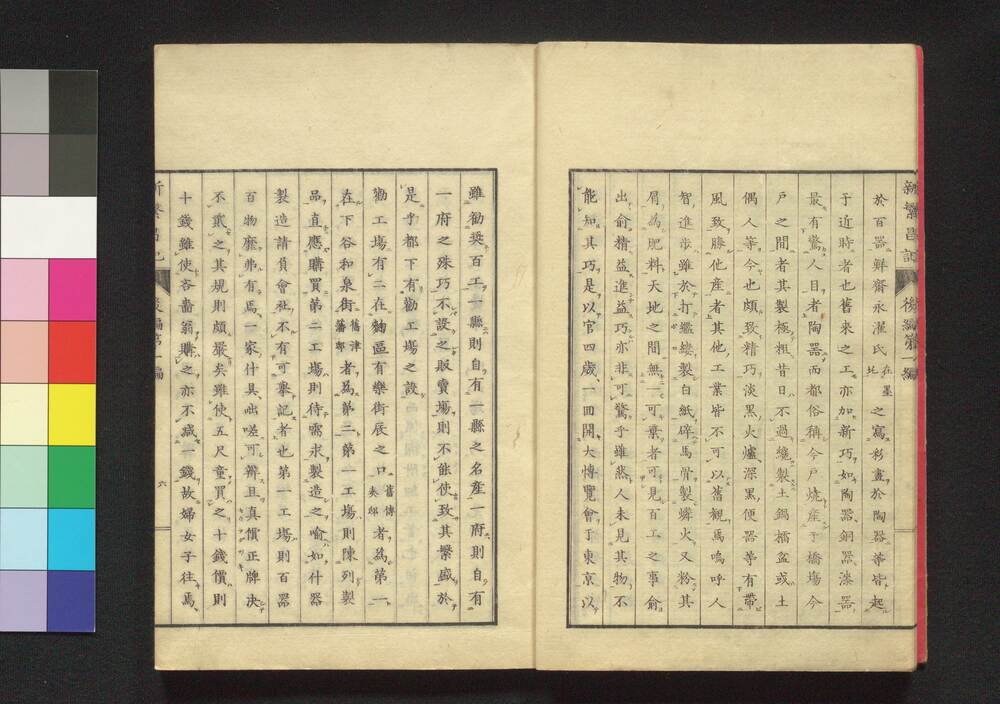 於百器鮮齋永濯氏在墨圠之寫彩畫於陶器等皆起
于近時者也舊來之工亦加新巧如陶器銅器漆器
最有驚人目者陶器而都俗稱今戸燒産于橋塲今
戸之間者其製極粗昔日不過纔製土鍋擂盆或土
偶人等今也頗致精巧淡黒火爐深黒便器等有帶
風致勝他産者其他工業皆不可以舊觀焉嗚呼人
智進歩雖於打襤褸製白紙碎馬骨製燐火又粉其
屑為肥料天地之間無一可棄者可見百工之事愈
出愈精益進益巧亦非可驚乎雖然人未見其物不
能知其巧是以官四歳一回開大博覽會于東京以
新繁昌記
後編第一編
雖勸奬百工一縣則自有一縣之名産一府則自有
一府之殊巧不設之販賣塲則不能使致其繁盛於
是乎都下有勸工塲之設
勸工塲有二在麹區有樂街辰之口舊傳奏邸者為第一
在下谷和泉街舊津藩邸者為第二第一工塲則陳列製
品直應購買第二工塲則待需求製造之喻如什器
製造請負會社不有可擧記者也第一工塲則百器
百物靡弗有焉一家什具咄嗟可辨且真價正牌決
不貳之其規則頗嚴矣雖使五尺童買之十錢價則
十錢雖使吝嗇翁購之亦不减一錢故婦女子往焉
後編第一編
六